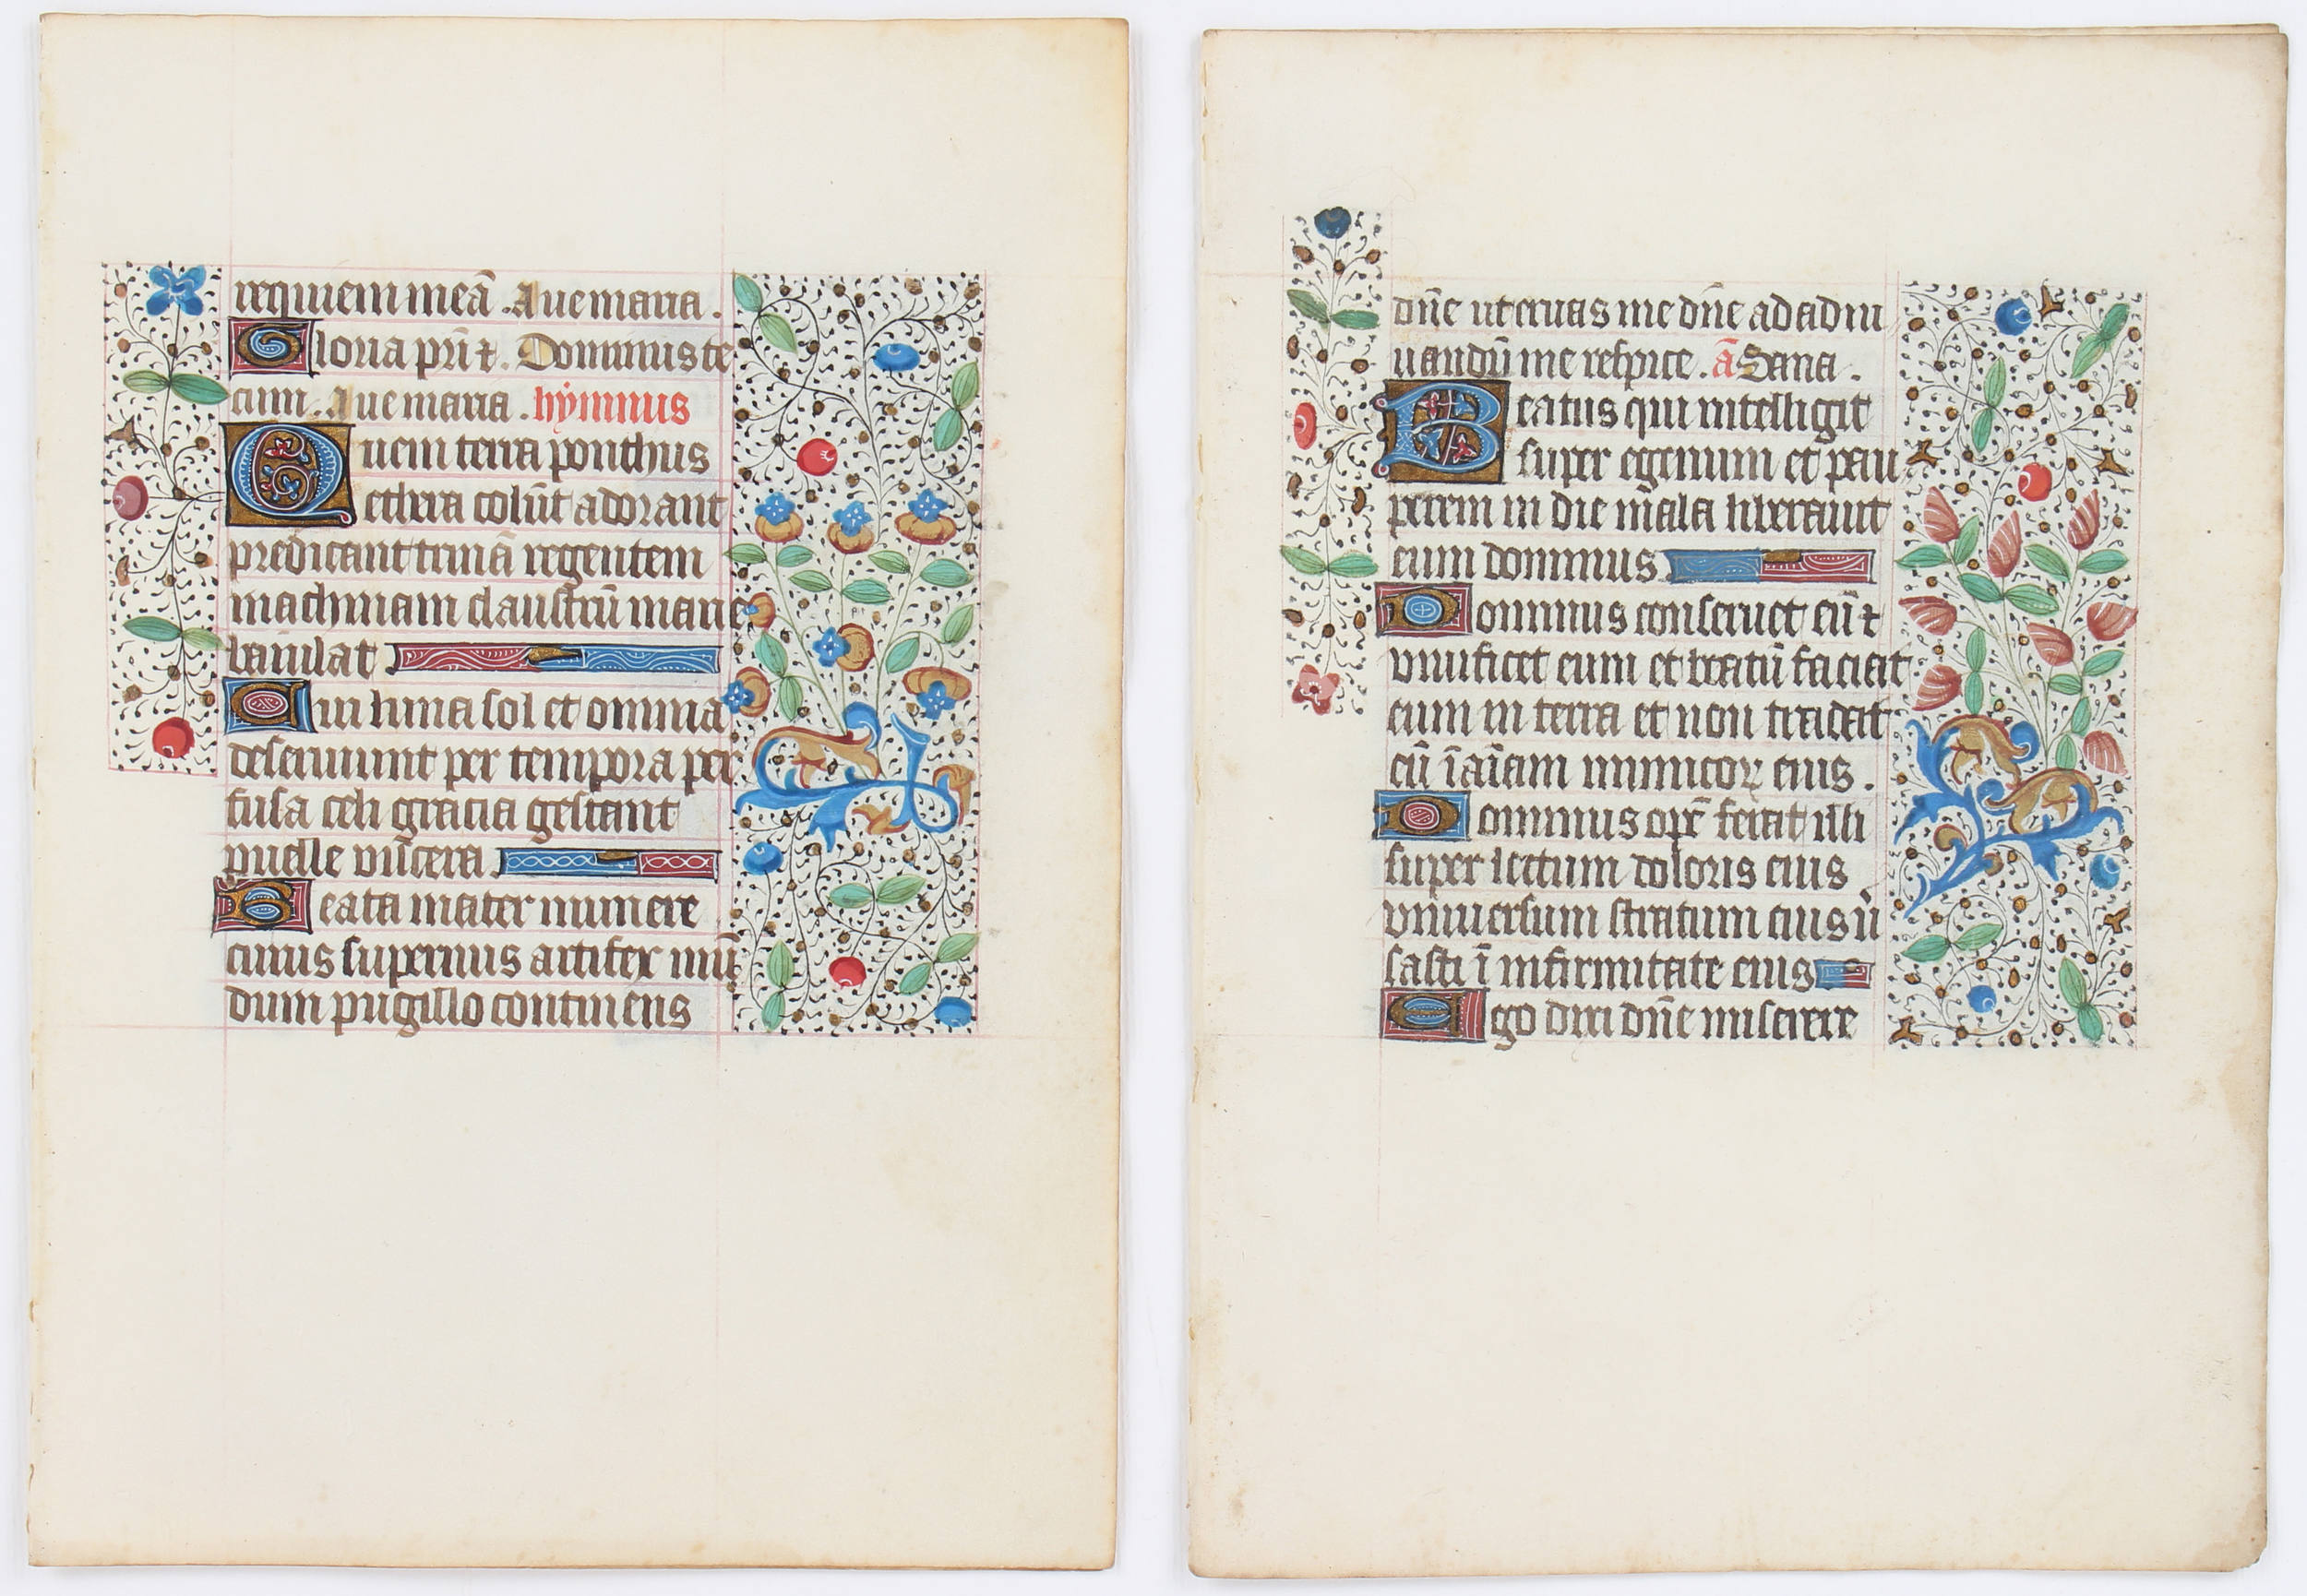 requiem meā . Aue maria .
Gloria pr̄i ⁊ . Dominus te
cum . Aue maria . hymnus
Quem terra ponthus
ethera colūt adorant
predicant trinā regentem
machinam claustrū marie
baiulat
Cui luna sol et omnia
deseruiunt per tempora per
fusa celi gracia gestant
puelle viscera .
Beata mater munere
cuius supernus artifex mū
dum pugillo continens
dn̄e ut eruas me dn̄e ad adiu
uandū me respice . ā Sana .
Beatus qui intelligit
super egenum et pau
perem in die mala liberauit
eum dominus
Dominus conseruet eū ⁊
viuificet eum et beatū faciat
eum in terra et non tradat
eū ī aīam inimicoꝝ eius .
Dominus opē ferat illi
super lectum doloris eius
vniuersum stratum eius ū
sasti ī infirmitate eius
Ego dixi dn̄e miserere